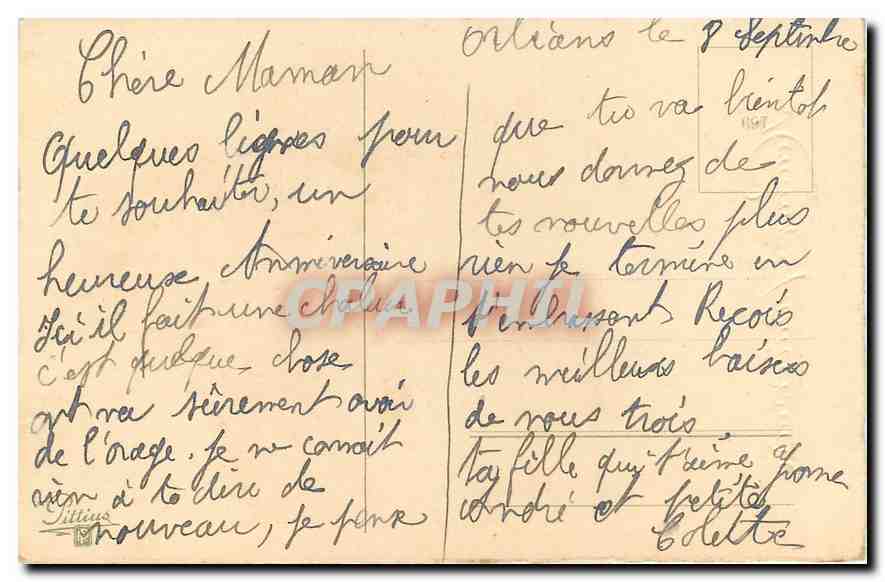 Orléans le 8 Septembre
Chère Maman
Quelques lignes pour
te souhaiter, un
heureuse Anniversaire
Ici il fait une chaleur
c'est quelque chose
ont va sûrement avoir
de l'orage. Je ne connait
rien à te dire de
nouveau, je pense
que tu va bientot
nous donnez de
tes nouvelles plus
rien je termine en
t'embrassant Reçois
les meilleurs baisers
de nous trois
ta fille qui t'aime
andré et petite
Colette
Sittius
CPAPHIL